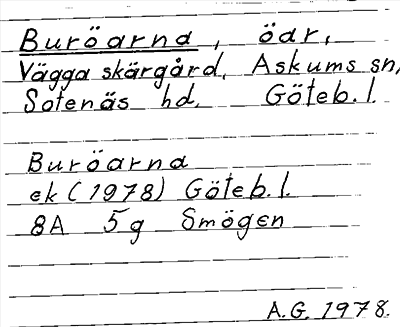 Buröarna, öar,
Vägga skärgård, Askums sn,
Sotenäs hd. Göteb. l.
Buröarna
ek (1978) Göteb. l.
8A 5g Smögen
A.G. 1978.